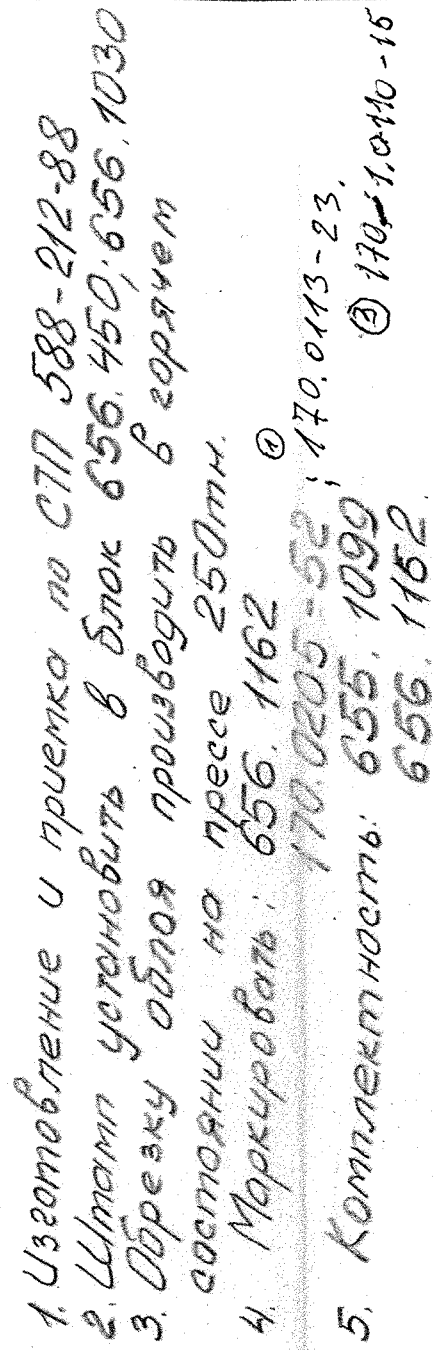 1. Изготовление и приемка по СТП 588-212-88
2. Штамп установить в блок 656.450; 656.1030
3. Обрезку облоя производить в горячем
состоянии на прессе 250тн.
4. Маркировать: 656.1162 ①
170.0205-52 ; 170.0113-23.
5. Комплектность: 655.1099 ③ 170.1.0110-15
656.1152.